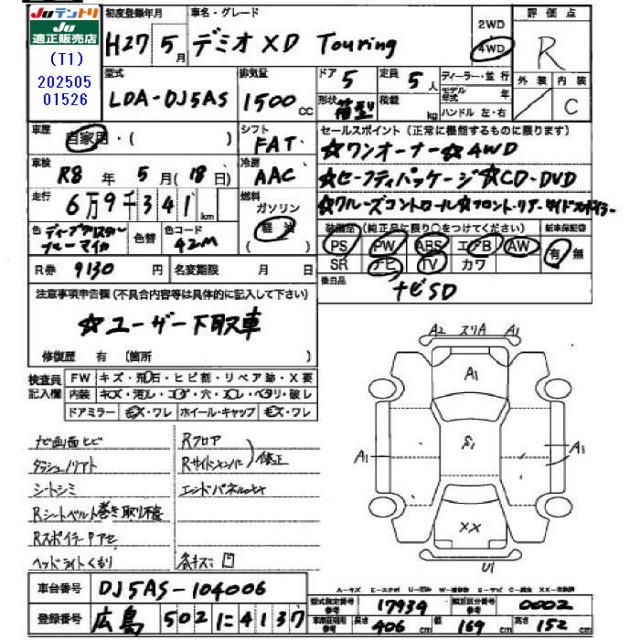 Juテントリ
Ju
適正販売店
(T1)
202505
01526
初度登録年月
H27 5月
車名・グレード
デミオ XD Touring
2WD
4WD
評価点
R
型式
LDA-DJ5AS
排気量
1500 cc
ドア 5
定員 5人
形状 箱型
積載 kg
ディーラー・並行
モデル年式 年
ハンドル 左・右
外装 内装
C
車歴
自家用・( )
シフト
FAT
セールスポイント (正常に機能するものに限ります)
☆ワンオーナー☆4WD
車検
R8年 5月(18日)
冷房
AAC
☆セーフティパッケージ☆CD・DVD
走行
6万9千341km
燃料
ガソリン
軽油
☆クルーズコントロール☆フロント・リア・サイドスポイラー
色 ディープクリスタルブルーマイカ
色替
色コード
42M
装備品 (純正品に限り○をつけてください)
新車保証書
PS PW ABS エアB AW
SR ナビ TV カワ
有・無
R券 9130円
名変期限 月 日
後日品
ナビSD
注意事項申告欄 (不具合内容等は具体的に記入して下さい)
☆ユーザー下取車
修復歴 有 (箇所 )
検査員記入欄
FW キズ・飛石・ヒビ割・リペア跡・X要
内装 キズ・汚レ・コゲ・穴・スレ・ヘタリ・破レ
ドアミラー キズ・ワレ ホイール・キャップ キズ・ワレ
ナビ画面ヒビ
ダッシュノリアト
シートシミ
Rシートベルト巻き取り不良
RスポイラーPアセ
ヘッドライトくもり
Rフロア
Rサイドメンバー
修正
エンドパネルハガセ
各キズ凹
A2 スリA A1
A1
S1
A1
A1
XX
U1
車台番号 DJ5AS-104006
登録番号 広島 502 に 4137
型式指定番号 参考 17939
類別区分番号 参考 0002
車検証明用 参考 長さ 406cm 幅 169cm 高さ 152cm